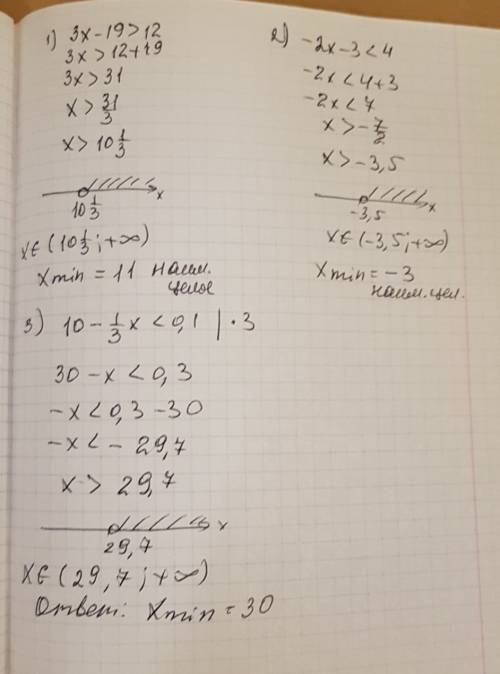 1) 3x-19>12
3x>12+19
3x>31
x>31/3
x>10 1/3
10 1/3 x
x∈(10 1/3;+∞)
xmin = 11 наим.
целое
2) -2x-3<4
-2x<4+3
-2x<7
x>-7/2
x>-3,5
-3,5 x
x∈(-3,5;+∞)
xmin = -3
наим. цел.
3) 10-1/3x<0,1 | ·3
30-x<0,3
-x<0,3-30
-x<-29,7
x>29,7
29,7 x
x∈(29,7;+∞)
Ответ: xmin = 30